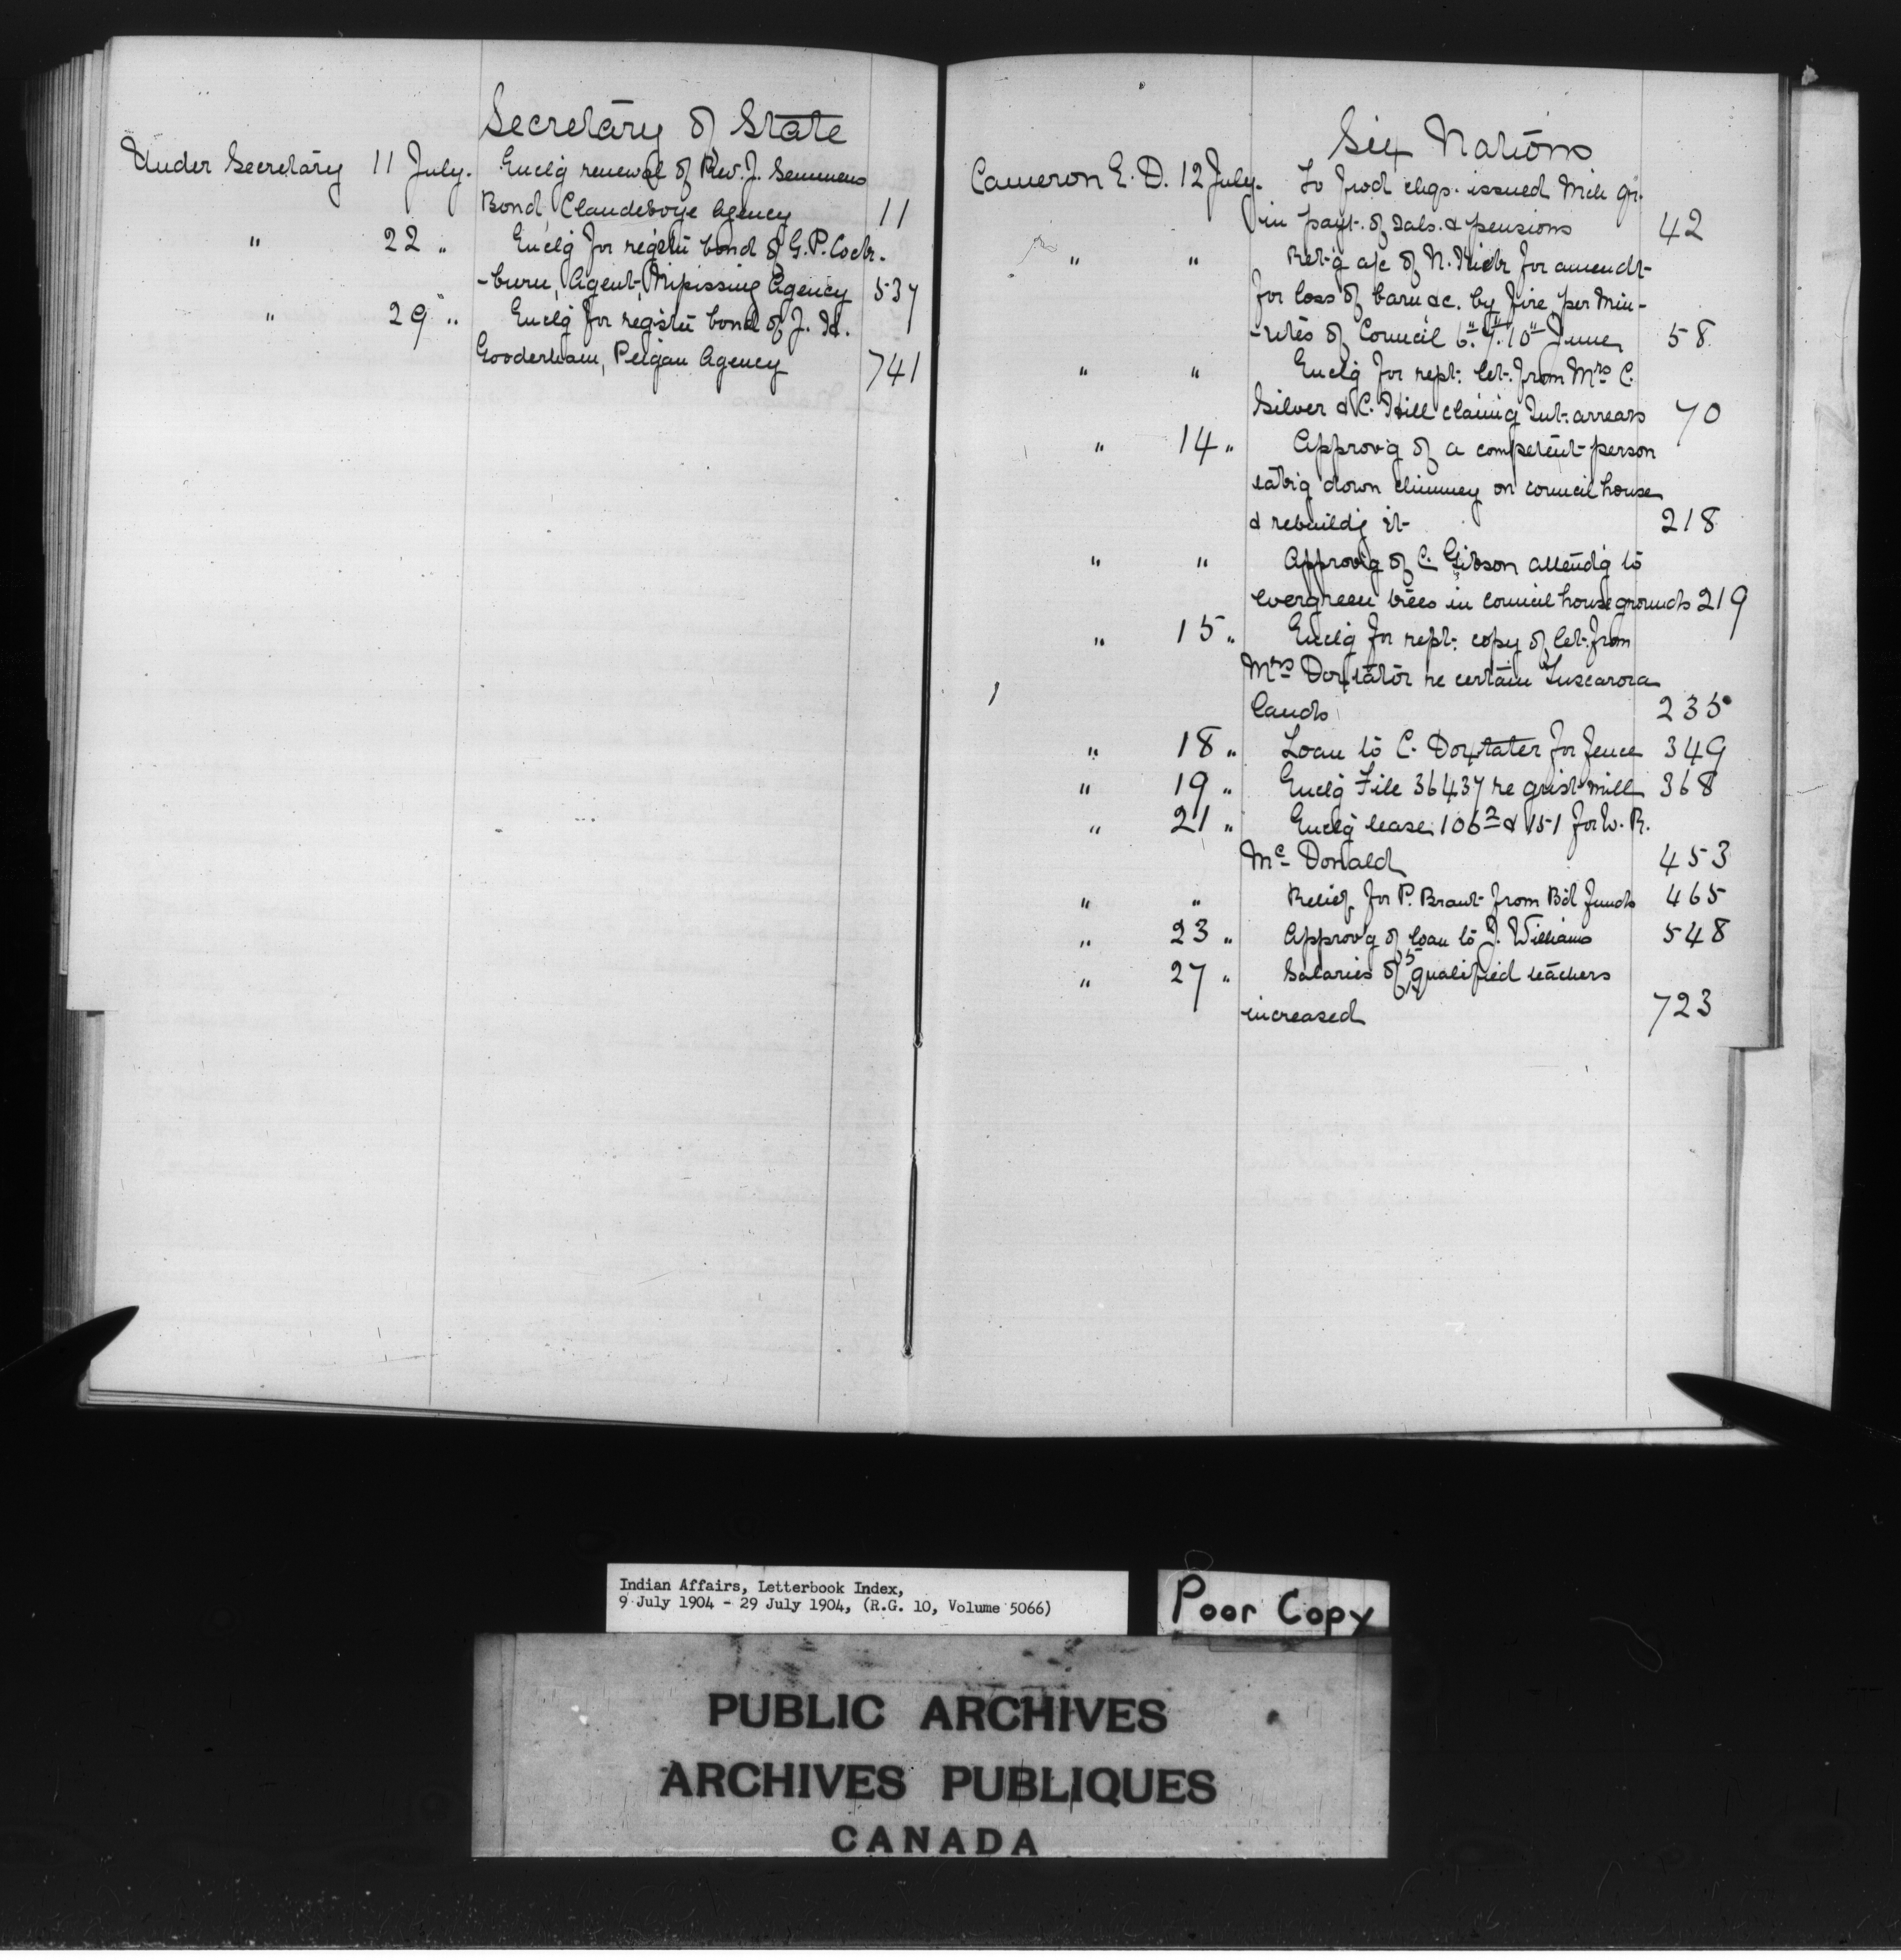 Secretary of State
Under Secretary 11 July. Enclg renewal of Rev. J. Semmens
Bond, Clandeboye Agency 11
" 22 " Enclg for registn bond of G. P. Cock-
-burn, Agent, Nipissing Agency 537
" 29 " Enclg for registn bond of J. H.
Gooderham, Peigan Agency 741
Six Nations
Cameron E. D. 12 July. To prod chqs. issued
in payt. of sals. & pensions 42
" " Retg a/c of N. for amendt
for loss of barn &c. by fire, per Min-
-utes of Council 6" 7" 10" June 58
" " Enclg for rept. let. from Mrs C.
Silver & C. Hill claimg Int. arrears 70
" 14 " Approvg of a competent person
takg down chimney on council house
& rebuildg it 218
" " Approvg of C. Gibson attendg to
evergreen trees in council house grounds 219
" 15 " Enclg for rept. copy of let. from
Mrs Doxtator re certain Tuscarora
lands 235
" 18 " Loan to C. Doxtater for fence 349
" 19 " Enclg File 36437 re grist mill 368
" 21 " Enclg lease 106 & 151 for W. R.
Mc Donald 453
" " Relief for P. Brant from Bd funds 465
" 23 " Approvg of loan to J. Williams 548
" 27 " Salaries of 5 qualified teachers
increased 723
Indian Affairs, Letterbook Index,
9 July 1904 - 29 July 1904, (R.G. 10, Volume 5066)
Poor Copy
PUBLIC ARCHIVES
ARCHIVES PUBLIQUES
CANADA